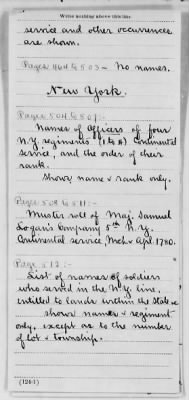 Write nothing above this line.
service and other occurrences
are shown.
Pages 464 to 503 — No names.
New York.
Pages 504 to 507:-
Names of Officers of four
N.Y. regiments (1 to 4) Continental
service, and the order of their
rank.
Shows name & rank only.
Pages 508 to 511:-
Muster roll of Maj. Samuel
Logan's Company 5th N.Y.
Continental service, Mch & Apl. 1780.
Page 512:-
List of names of soldiers
who served in the N.Y. line,
entitled to lands within the State
shows names & regiment
only, except as to the number
of lot & township.